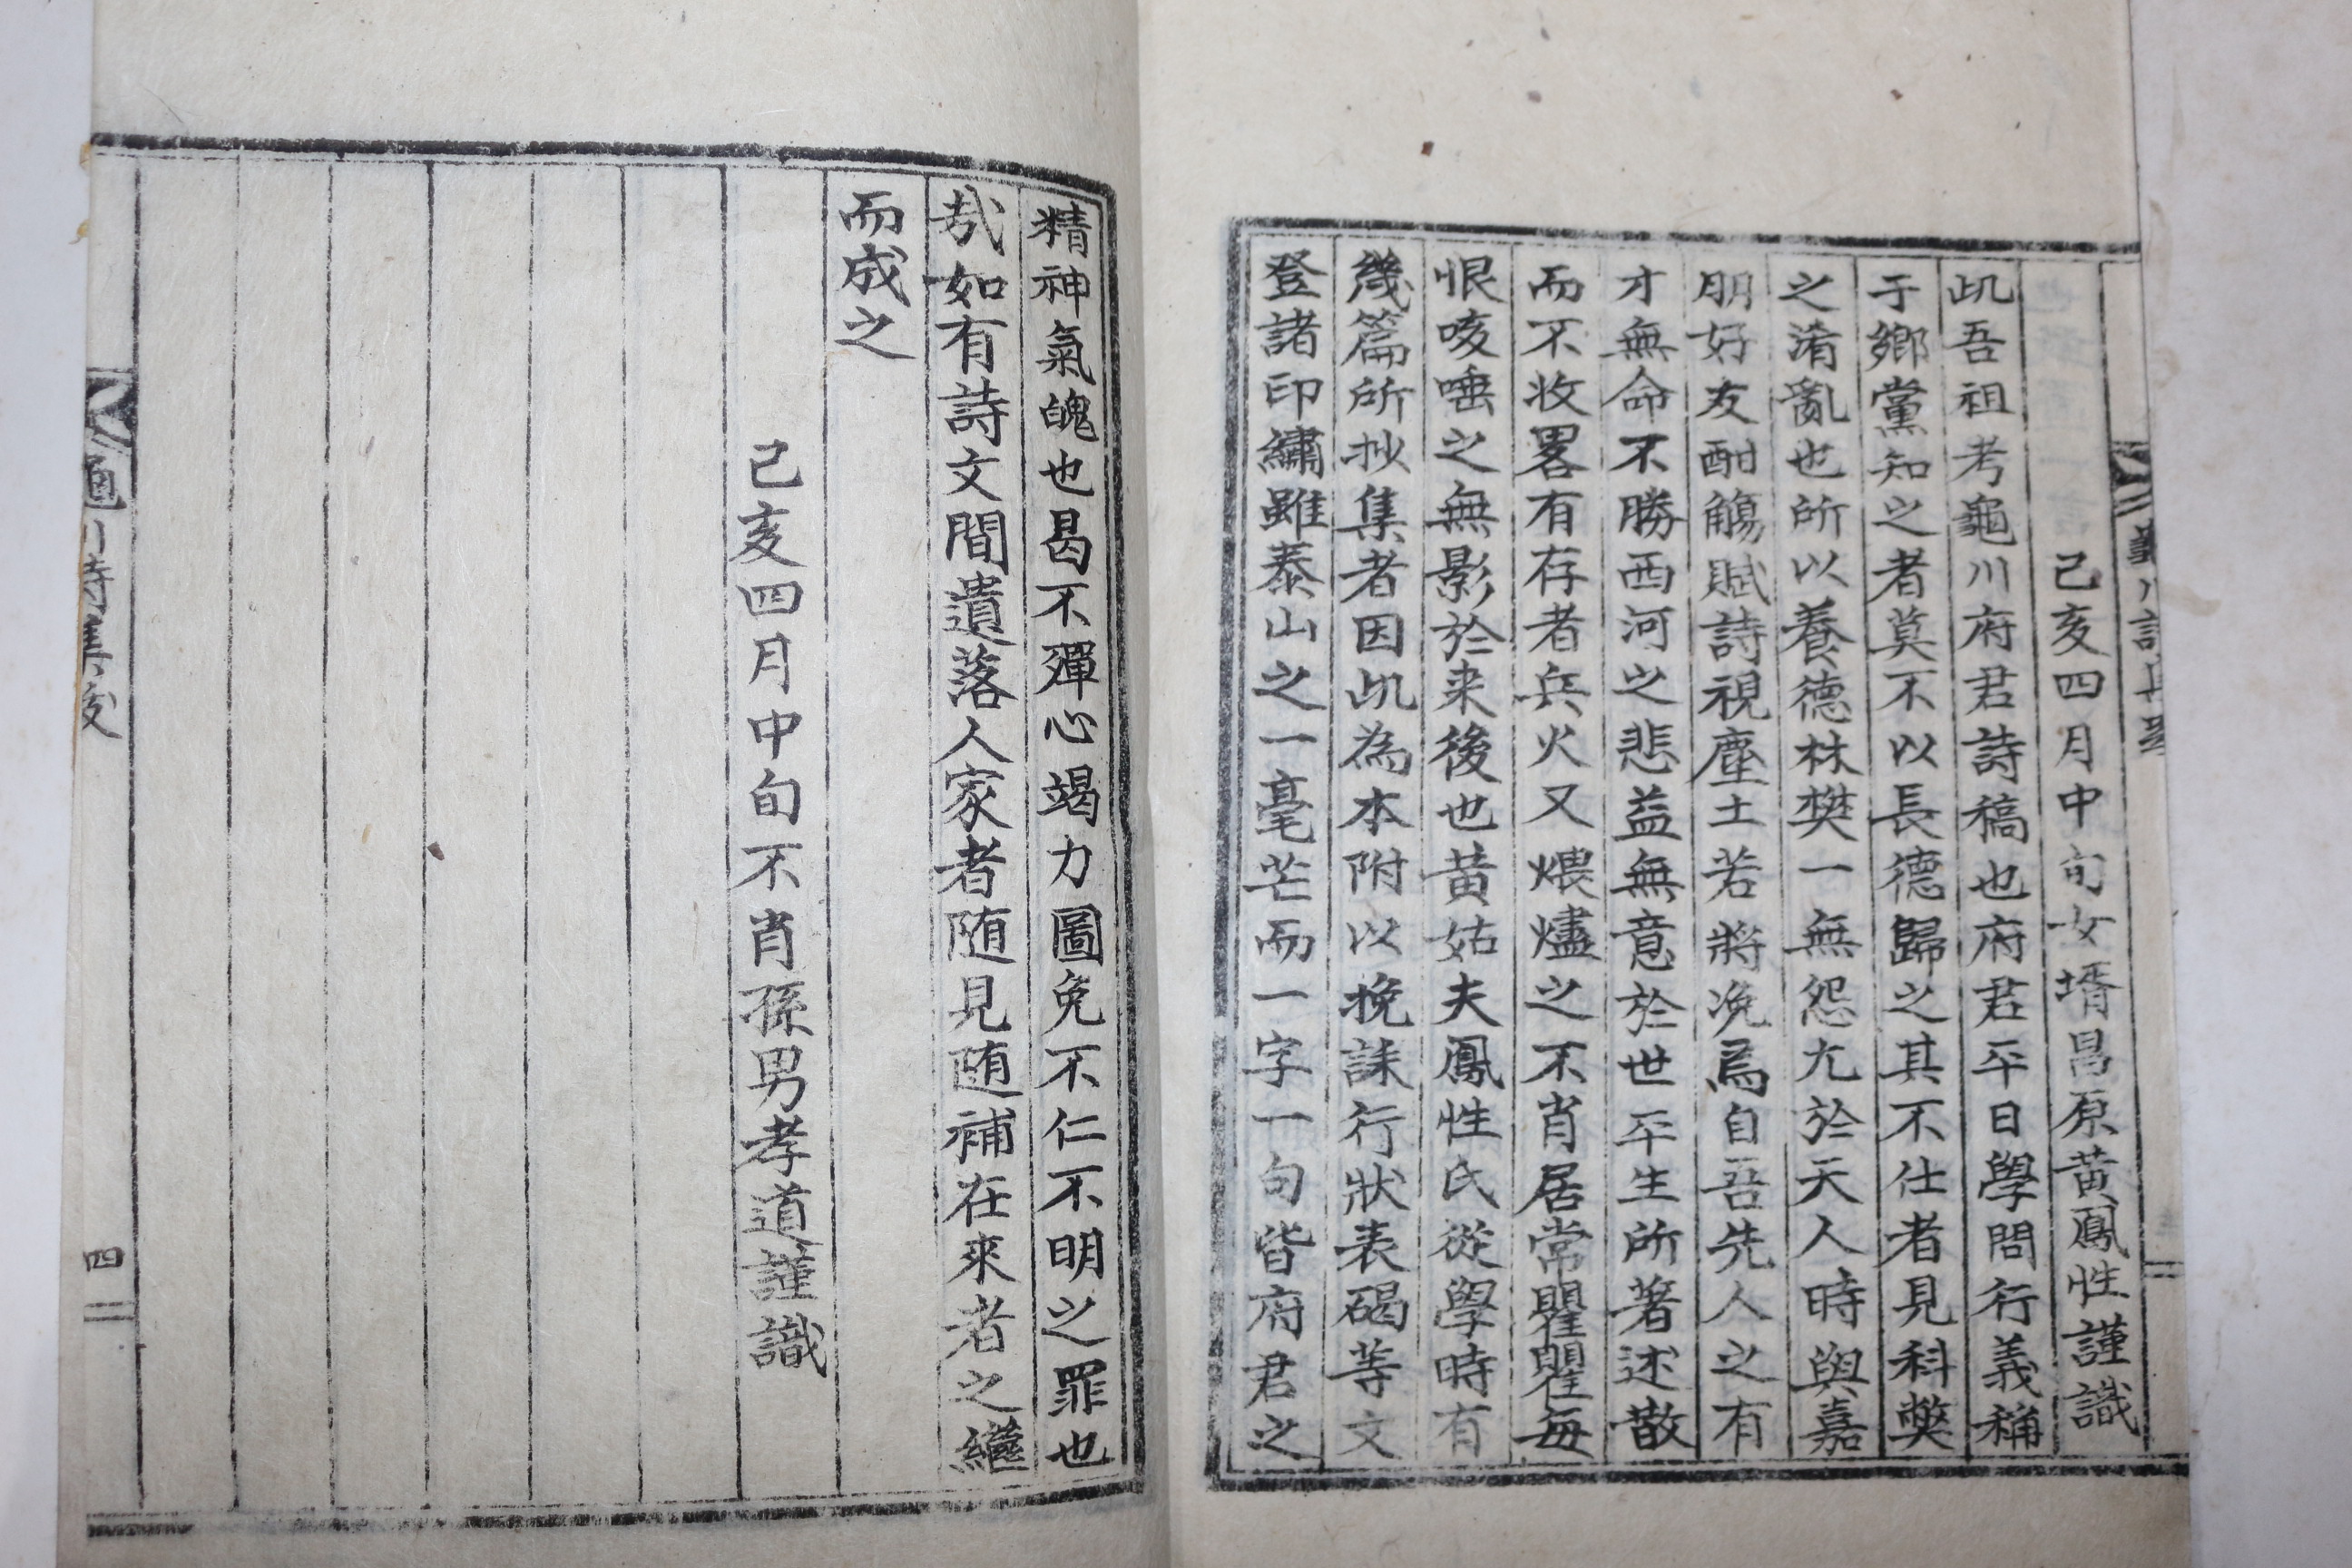 己亥四月中旬女壻昌原黃鳳性謹識
此吾祖考龜川府君詩稿也府君平日學問行義稱
于鄉黨知之者莫不以長德歸之其不仕者見科弊
之淆亂也所以養德林樊一無怨尤於天人時與嘉
朋好友酣觴賦詩視塵土若將浼焉自吾先人之有
才無命不勝西河之悲益無意於世平生所著述散
而不收畧有存者兵火又煨燼之不肖居常瞿瞿每
恨咳唾之無影於来後也黃姑夫鳳性氏從學時有
幾篇所抄集者因此為本附以挽誄行狀表碣等文
登諸印繡雖泰山之一毫芒而一字一句皆府君之
精神氣魄也曷不殫心竭力圖免不仁不明之罪也
㦲如有詩文間遺落人家者随見随補在來者之繼
而成之
己亥四月中旬不肖孫男孝道謹識
龜川詩集跋
四